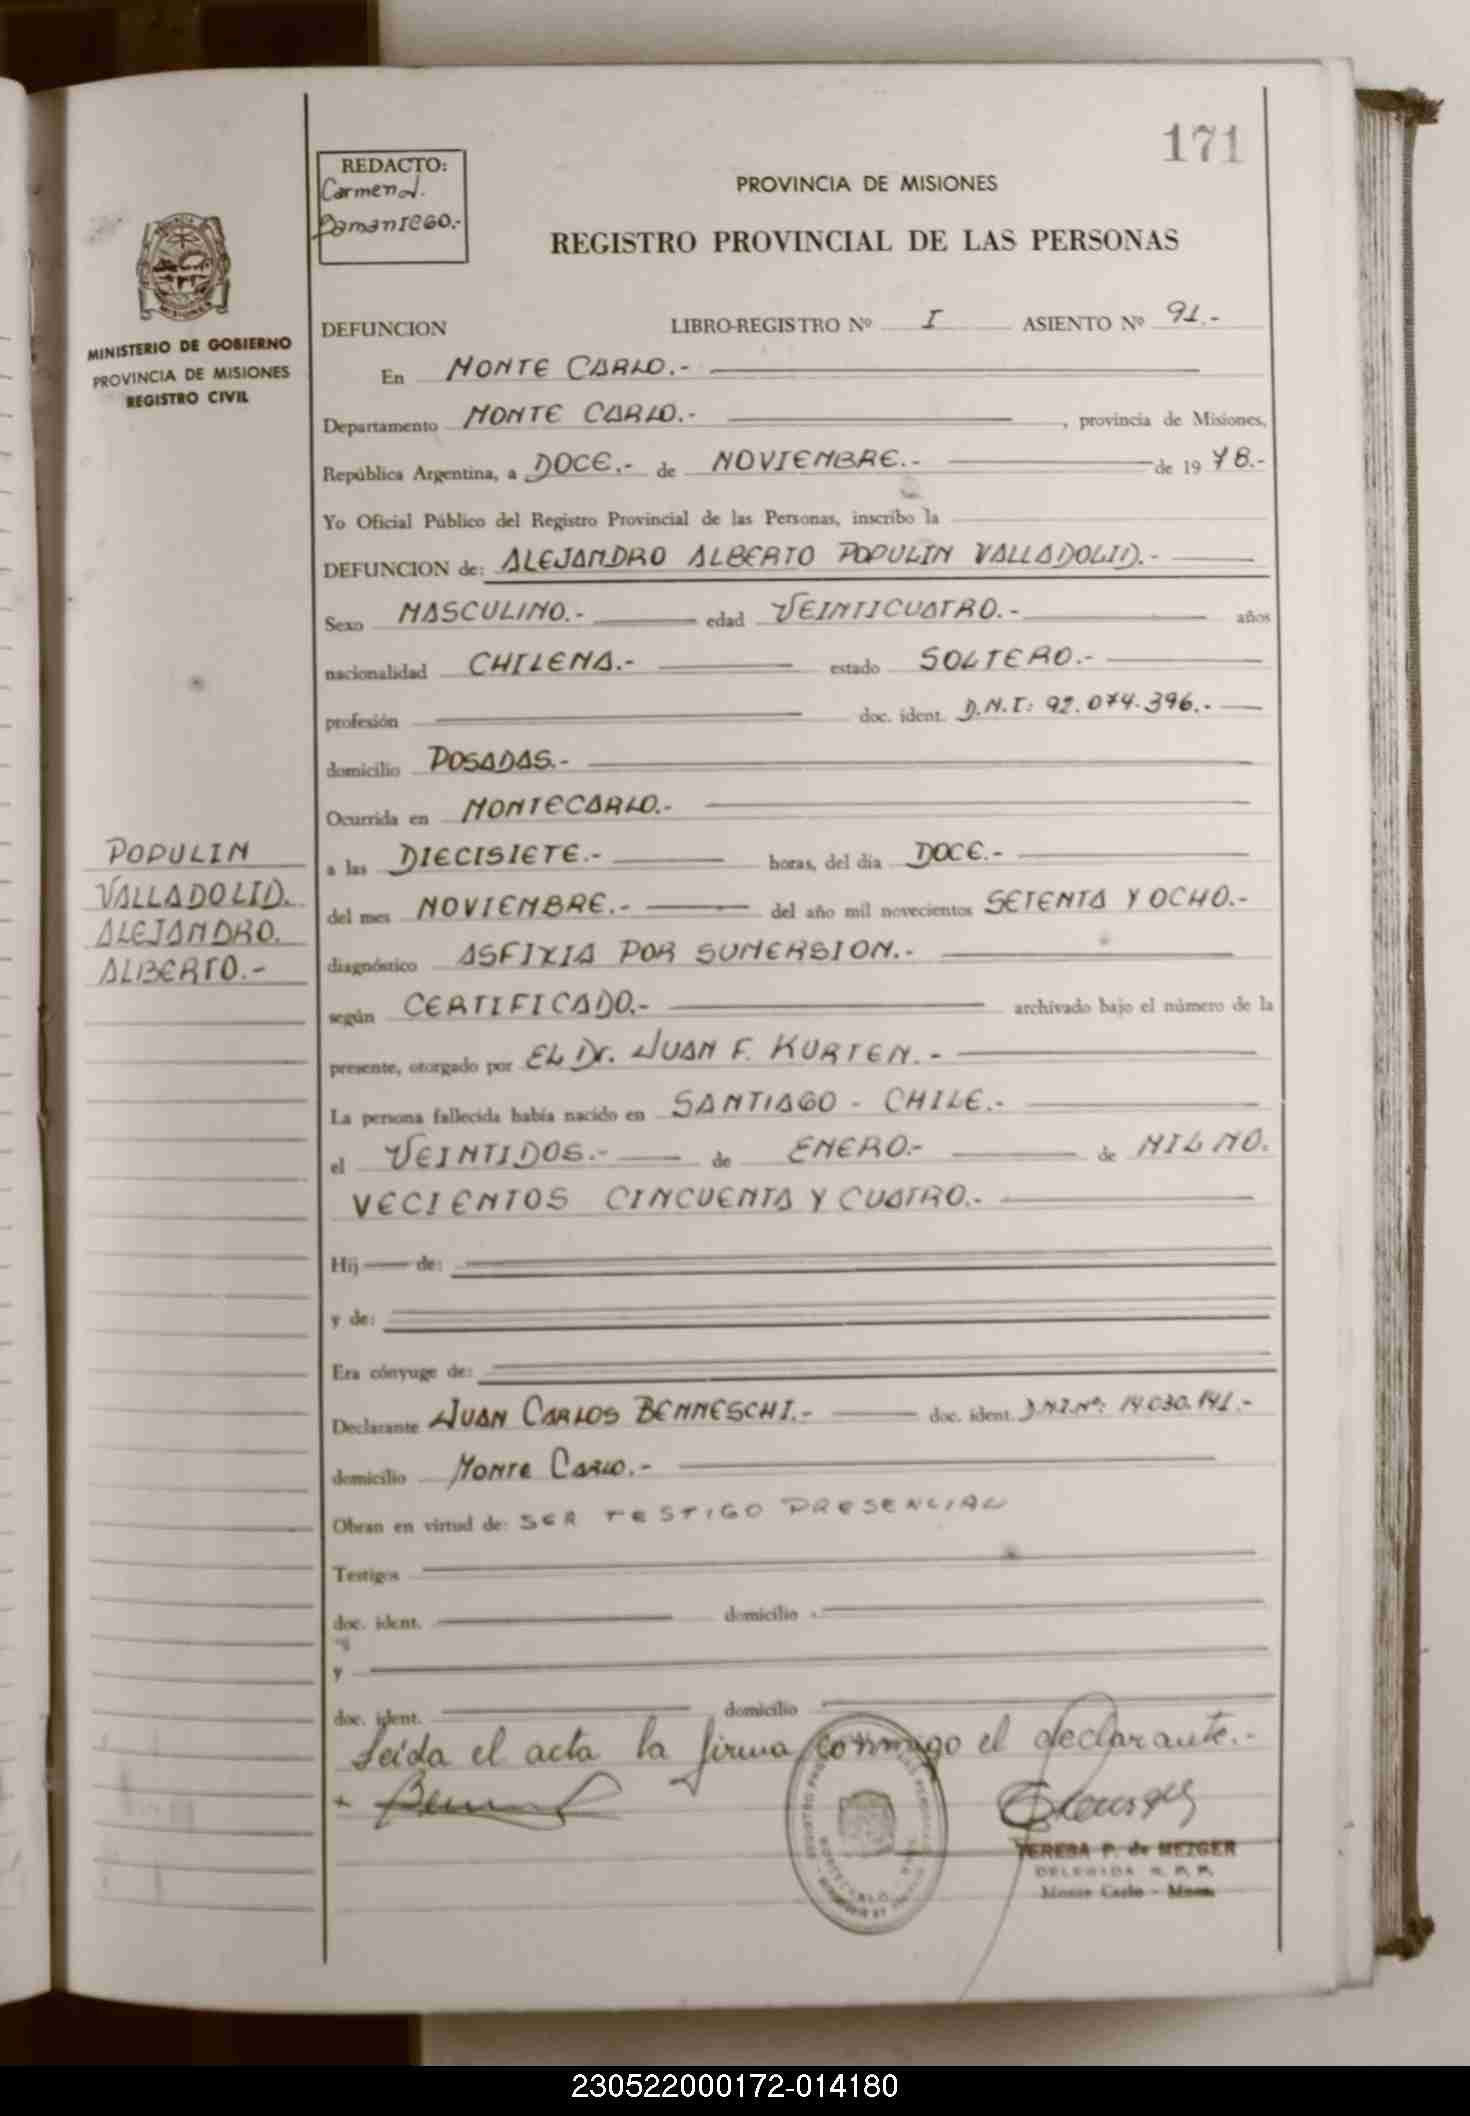 171
REDACTO:
Carmen J.
Samaniego.-
PROVINCIA DE MISIONES
REGISTRO PROVINCIAL DE LAS PERSONAS
MINISTERIO DE GOBIERNO
PROVINCIA DE MISIONES
REGISTRO CIVIL
DEFUNCION LIBRO-REGISTRO Nº I ASIENTO Nº 91.-
En MONTE CARLO.-
Departamento MONTE CARLO.- , provincia de Misiones,
República Argentina, a DOCE.- de NOVIEMBRE.- de 1978.-
Yo Oficial Público del Registro Provincial de las Personas, inscribo la
DEFUNCION de: ALEJANDRO ALBERTO POPULIN VALLADOLID.-
Sexo MASCULINO.- edad VEINTICUATRO.- años
nacionalidad CHILENA.- estado SOLTERO.-
profesión doc. ident. D.N.I: 92.074.396.-
domicilio POSADAS.-
Ocurrida en MONTECARLO.-
a las DIECISIETE.- horas, del día DOCE.-
del mes NOVIEMBRE.- del año mil novecientos SETENTA Y OCHO.-
diagnóstico ASFIXIA POR SUMERSION.-
según CERTIFICADO.- archivado bajo el número de la
presente, otorgado por EL Dr. JUAN F. KURTEN.-
La persona fallecida había nacido en SANTIAGO - CHILE.-
el VEINTIDOS.- de ENERO.- de MIL NO.
VECIENTOS CINCUENTA Y CUATRO.-
Hij de:
y de:
Era cónyuge de:
Declarante JUAN CARLOS BENNESCHI.- doc. ident. D.N.I.Nº: 14.030.141.-
domicilio MONTE CARLO.-
Obran en virtud de: SER TESTIGO PRESENCIAL
Testigos
doc. ident. domicilio
y
doc. ident. domicilio
Leída el acta la firma conmigo el declarante.-
TERESA P. de MEZGER
DELEGADA R. P. P.
Monte Carlo - Mnes.
POPULIN
VALLADOLID.
ALEJANDRO.
ALBERTO.-
230522000172-014180